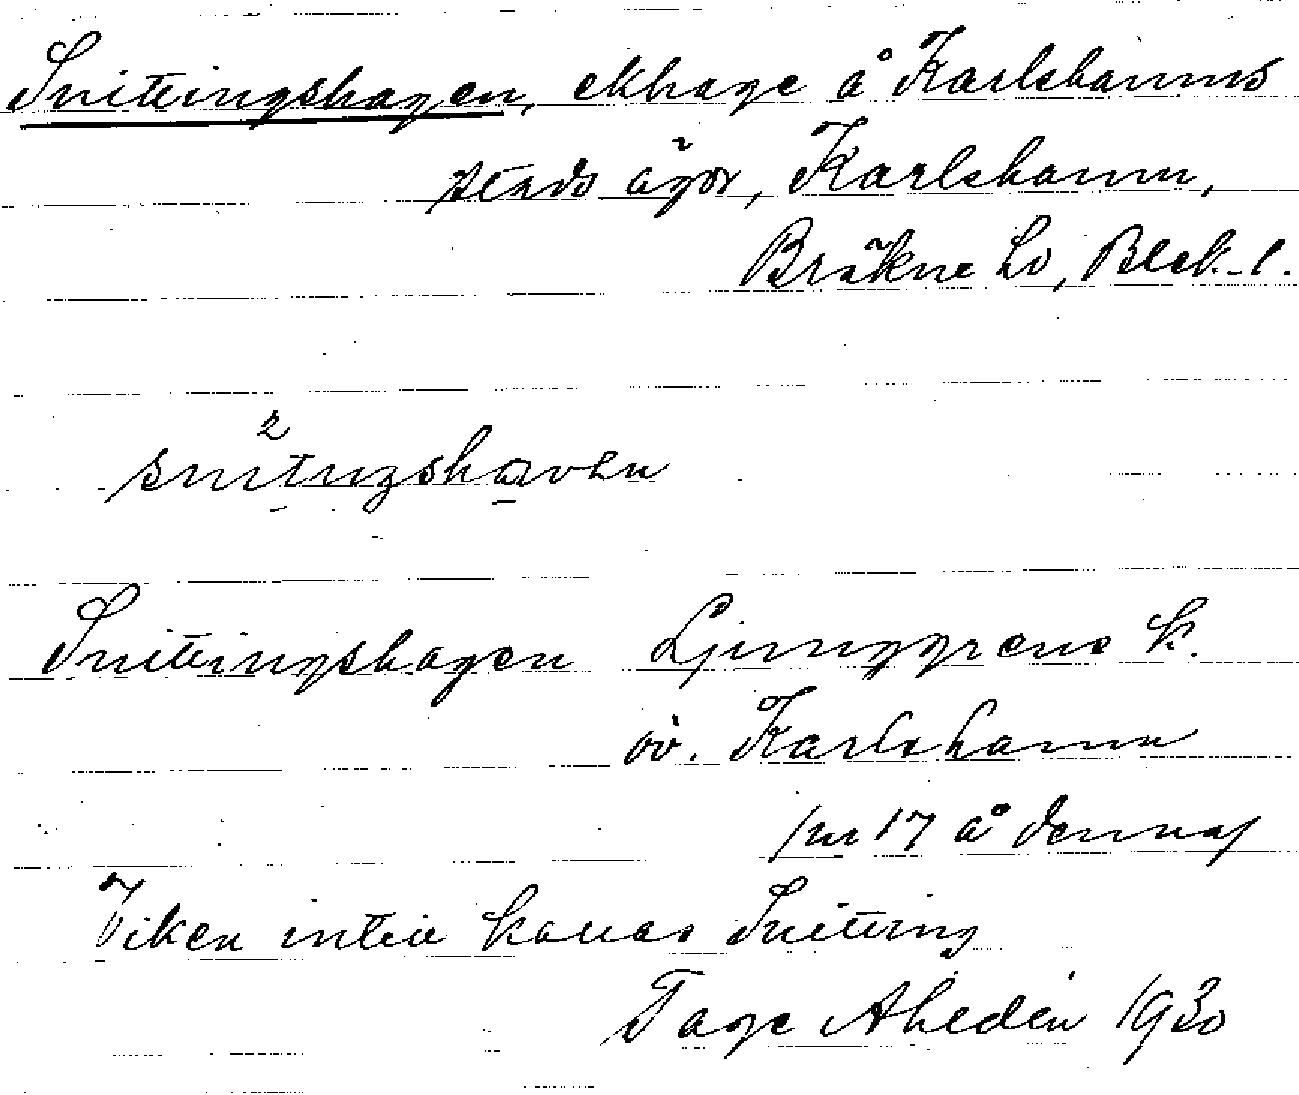 Snittingshagen, ekhage å Karlshamns
stads ägor, Karlshamn,
Bräkne hd, Blek. l.
Snittingshagen Ljunggrens k.
öv. Karlshamn
(nr 17 å denna)
Viken intill kallas Snitting
Tage Ahldén 1930